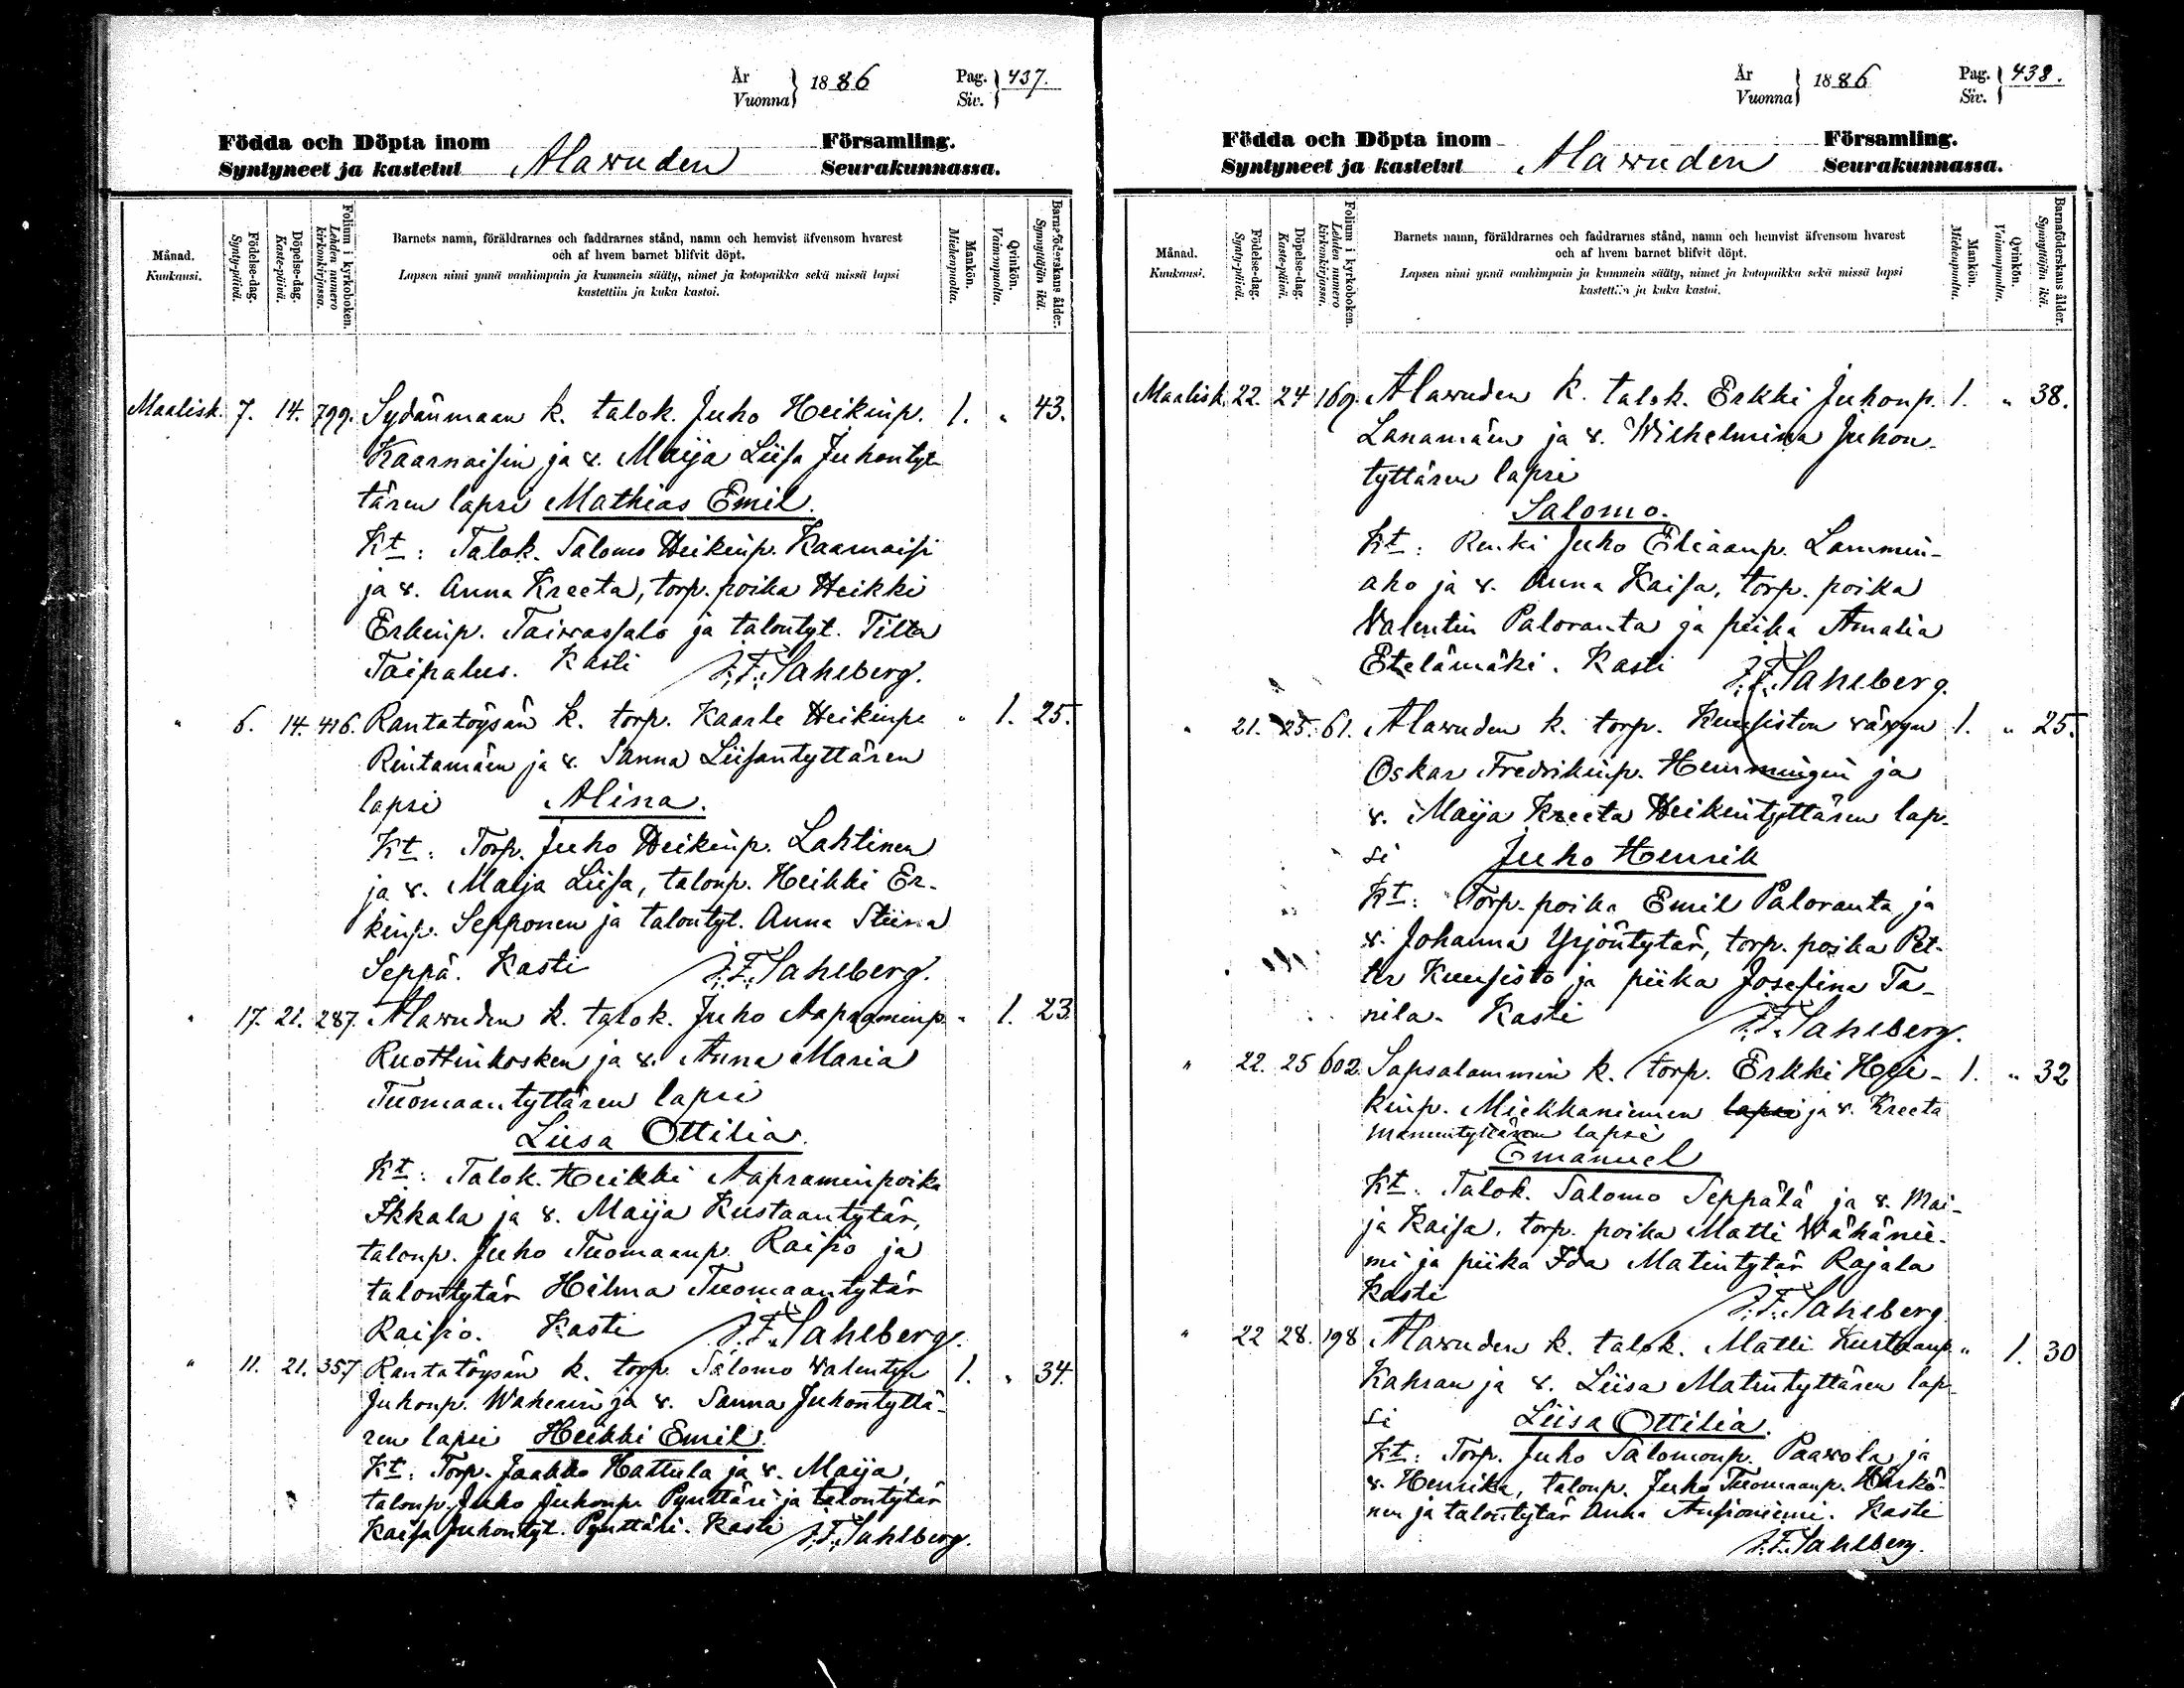 År
Vuonna } 1886 Pag.
Siv. } 437.
Födda och Döpta inom Församling.
Syntyneet ja kastetut Alawuden Seurakunnassa.
Månad.
Kuukausi.
Födelse-dag.
Synty-päivä.
Döpelse-dag.
Kaste-päivä.
Folium i kyrkoboken.
Lehden numero
kirkonkirjassa.
Barnets namn, föräldrarnes och faddrarnes stånd, namn och hemvist äfvensom hvarest
och af hvem barnet blifvit döpt.
Lapsen nimi ynnä vanhimpain ja kummein sääty, nimet ja kotopaikka sekä missä lapsi
kastettiin ja kuka kastoi.
Mankön.
Miehenpuolta.
Qvinkön.
Vaimonpuolta.
Barnaföderskans ålder.
Synnyttäjän ikä.
Maalisk. 7. 14. 799. Sydänmaan k. talok. Juho Heikinp. 1. " 43.
Kaarnaisin ja v. Maija Liisa Juhontyt-
tären lapsi Mathias Emil.
Kt: Talok. Salomo Heikinp. Kaarnaisi
ja v. Anna Kreeta, torp. poika Heikki
Erkinp. Taiwassalo ja talontyt. Tilta
Taipalus. Kasti J.F. Sahlberg.
" 6. 14. 416. Rantatöysän k. torp. Kaarle Heikinp. " 1. 25.
Rintamäen ja v. Sanna Liisantyttären
lapsi Alina.
Kt: Torp. Juho Heikinp. Lahtinen
ja v. Maija Liisa, talonp. Heikki Er-
kinp. Sepponen ja talontyt. Anna Stiina
Seppä. Kasti J.F. Sahlberg.
" 17. 21. 287. Alawuden k. talok. Juho Aapraminp. " 1. 23
Ruottinkosken ja v. Anna Maria
Tuomaantyttären lapsi
Liisa Ottilia.
Kt: Talok. Heikki Aapraminpoika
Ikkala ja v. Maija Kustaantytär,
talonp. Juho Tuomaanp. Raisio ja
talontytär Hilma Tuomaantytär
Raisio. Kasti J.F. Sahlberg.
" 11. 21. 357 Rantatöysän k. torp. Salomo Valentin 1. " 34.
Juhonp. ja v. Sanna Juhontyttä-
ren lapsi Heikki Emil.
Kt: Torp. Jaakko Hattula ja v. Maija,
talonp. Juho Juhonp. Pynttäri ja talontytär
Kaisa Juhontyt. Pynttäri. Kasti J.F. Sahlberg.
År
Vuonna } 1886 Pag.
Siv. } 438.
Födda och Döpta inom Församling.
Syntyneet ja kastetut Alawuden Seurakunnassa.
Månad.
Kuukausi.
Födelse-dag.
Synty-päivä.
Döpelse-dag.
Kaste-päivä.
Folium i kyrkoboken.
Lehden numero
kirkonkirjassa.
Barnets namn, föräldrarnes och faddrarnes stånd, namn och hemvist äfvensom hvarest
och af hvem barnet blifvit döpt.
Lapsen nimi ynnä vanhimpain ja kummein sääty, nimet ja kotopaikka sekä missä lapsi
kastettiin ja kuka kastoi.
Mankön.
Miehenpuolta.
Qvinkön.
Vaimonpuolta.
Barnaföderskans ålder.
Synnyttäjän ikä.
Maalisk. 22. 24 169. Alawuden k. talok. Erkki Juhonp. 1. " 38.
Lanamäen ja v. Wilhelmina Juhon-
tyttären lapsi
Salomo.
Kt: Renki Juho Eliaanp. Lammin-
aho ja v. Anna Kaisa, torp. poika
Valentin Paloranta ja piika Amalia
Etelämäki. Kasti J.F. Sahlberg.
" 21. 25. 61. Alawuden k. torp. Kuusiston vävyn 1. " 25.
Oskar Fredrikinp. Hemmingin ja
v. Maija Kreeta Heikintyttären lap-
si Juho Henrik
Kt: Torp. poika Emil Paloranta ja
v. Johanna Yrjöntytär, torp. poika Pet-
ter Kuusisto ja piika Josefina Ta-
nila. Kasti J.F. Sahlberg.
" 22. 25 602. Sapsalammin k. torp. Erkki Hei- 1. " 32
kinp. Miekkaniemen lapsi ja v. Kreeta
Manuntyttären lapsi
Emanuel
Kt. Talok. Salomo Seppälä ja v. Mai-
ja Kaisa, torp. poika Matti Wähänie-
mi ja piika Ida Matintytär Rajala
Kasti J.F. Sahlberg.
" 22 28. 198 Alawuden k. talok. Matti Kustaanp. " 1. 30
Kahran ja v. Liisa Matintyttären lap-
si Liisa Ottilia.
Kt: Torp. Juho Salomonp. Paawola ja
v. Henrika, talonp. Juho Tuomaanp. Härkö-
nen ja talontytär Anna Kasti
J.F. Sahlberg.